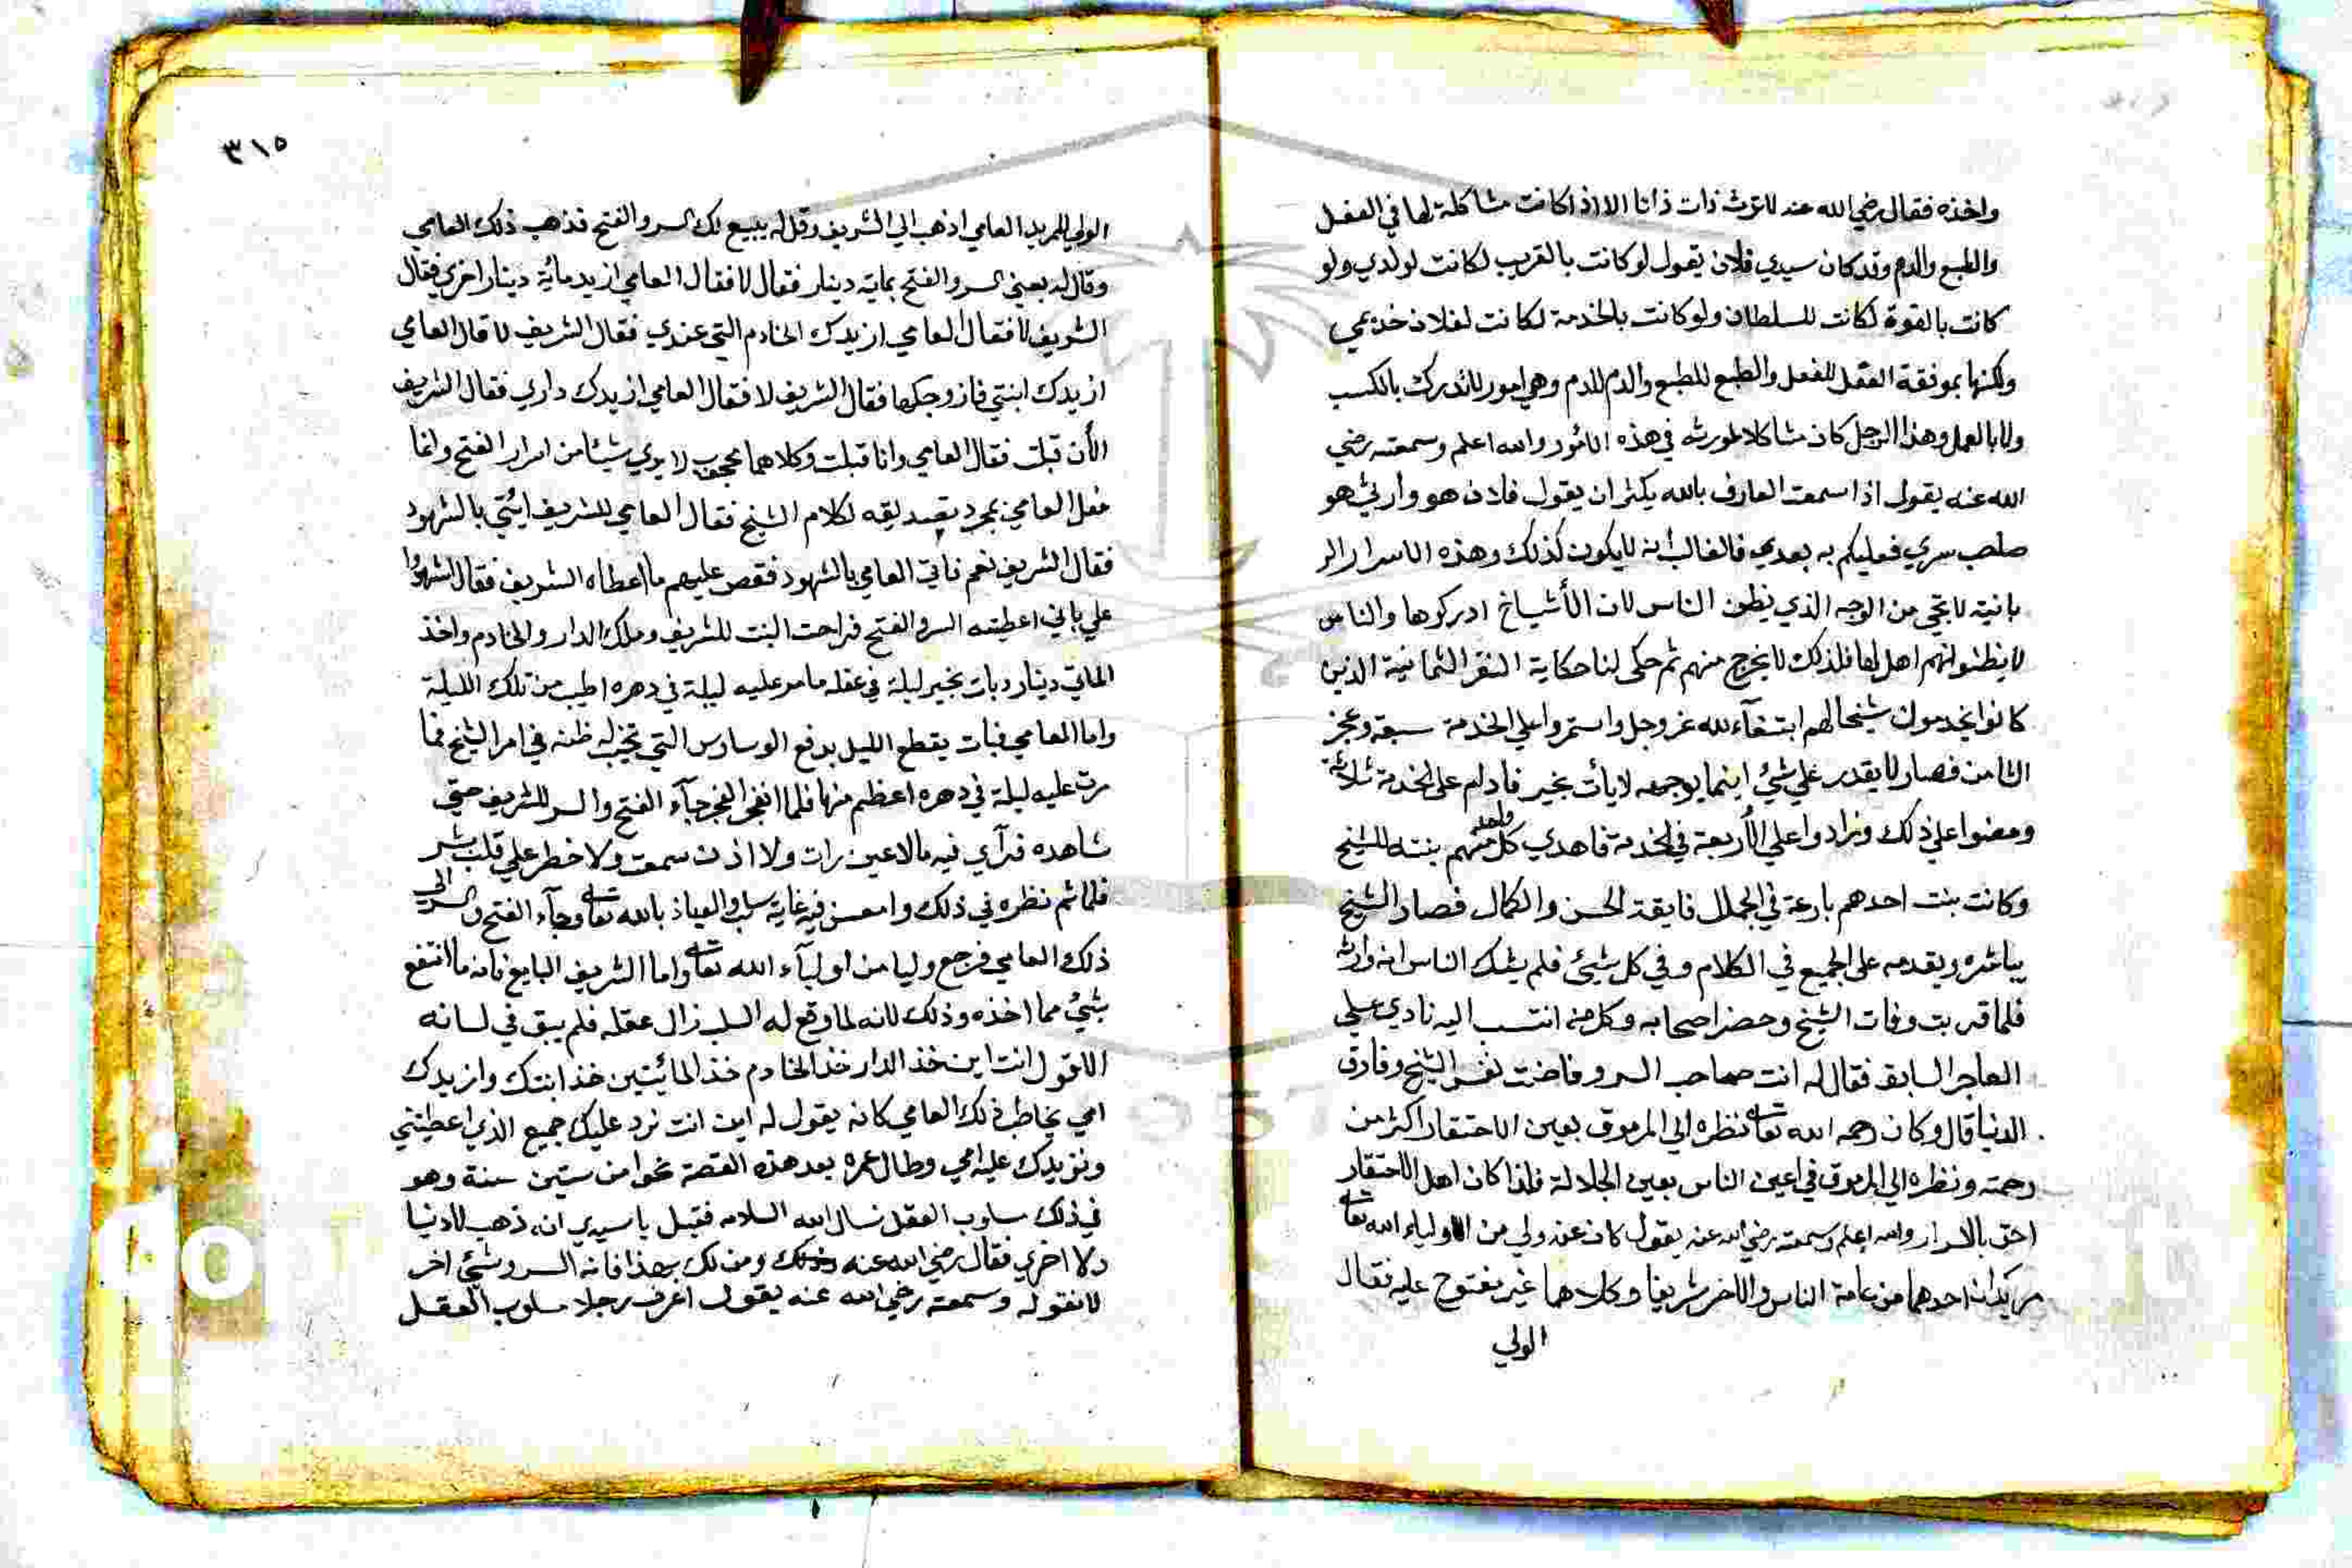 واخذه فقال رضي الله عنه لا ترث ذات ذاتا الا اذا كانت مشاكلة لها في العقل
والطبع والدم وقد كان سيدي فلان يقول لو كانت بالقرب لكانت لولدي ولو
كانت بالقوة لكانت للسلطان ولو كانت بالخدمة لكانت لفلان خديمي
ولكنها بموفقة العقل للفعل والطبع للطبع والدم للدم وهي امور لا تدرك بالكسب
ولا بالعمل وهذا الرجل كان مشاكلا لمورثه في هذه الامور والله اعلم وسمعته رضي
الله عنه يقول اذا سمعت العارف بالله يكثر ان يقول فلان هو وارثي هو
صاحب سري فعليكم به بعدي فالغالب انه لا يكون كذلك وهذه الاسرار الر
بانية لا تجي من الوجه الذي يظن الناس لان الأشياخ ادركوها والناس
لا يظنوا انهم اهل لها فلذلك لا يخرج منهم ثم حكى لنا حكاية النفر الثمانية الذين
كانوا يخدمون شيخا لهم ابتغآء لله عز وجل واستمروا على الخدمة سبعة وعجز
الثامن فصار لا يقدر علي شيء اينما يوجهه لا يأت بخير فادام على الخدمة ثلاثة
ومضوا علي ذلك وزادوا علي الأربعة في الخدمة فاهدي كل واحد منهم بنته للشيخ
وكانت بنت احدهم بارعة في الجمال فايقة الحسن والكمال فصار الشيخ
يباشره ويقدمه على الجميع في الكلام وفي كل شيئ فلم يشك الناس انه وارثه
فلما قربت وفات الشيخ وحضر اصحابه وكل من انتسب اليه نادي علي
العاجز السابق فقال له انت صاحب السر وفاضت نفس الشيخ وفارق
الدنيا قال وكان رحمه الله تعالى نظره الي المرموق بعين الاحتقار اكثر من
رحمته ونظره الي المرموق في اعين الناس بعين الجلالة فلذا كان اهل الاحتقار
احق بالاسرار والله اعلم وسمعته رضي الله عنه يقول كان عند ولي من اولياء الله تعالى
مريدان احدهما من عامة الناس والاخر شريفا وكلاهما غير مفتوح عليه فقال
الولي
٣١٥
الولي للمريد العامي اذهب الي الشريف وقل له يبيع لك السر والفتح فذهب ذلك العامي
وقال له بعني السر والفتح بماية دينار فقال لا فقال العامي ازيد مائة دينار اخري فقال
الشريف لا فقال العامي ازيدك الخادم التي عندي فقال الشريف لا قال العامي
ازيدك ابنتي فازوجكها فقال الشريف لا فقال العامي ازيدك داري فقال الشريف
الأن قبلت فقال العامي وانا قبلت وكلاهما محجوب لا يري شيئا من اسرار الفتح وانما
فعل العامي بمجرد تصديقه لكلام الشيخ فقال العامي للشريف ائتي بالشهود
فقال الشريف نعم فاتي العامي بالشهود فقص عليهم ما اعطاه الشريف فقال اشهدوا
علي باني اعطيته السر والفتح فراحت البنت للشريف وملك الدار والخادم واخذ
الماتي دينار وبات بخير ليلة في عقله ما مر عليه ليلة في دهره اطيب من تلك الليلة
واما العامي فبات يقطع الليل بدفع الوساوس التي تخيب له ظنه في امر الشيخ فما
مرت عليه ليلة في دهره اعظم منها فلما انفجر الفجر جآء الفتح والسر للشريف حتي
شاهده فرآي فيه ما لا عين رات ولا اذن سمعت ولا خطر علي قلب بشر
فلما تم نظره في ذلك وامعن فيه غاية سلب والعياذ بالله تعالى وجآء الفتح والسر الي
ذلك العامي فرجع وليا من اوليآء الله تعالى واما الشريف البايع فانه ما انتفع
بشيء مما اخذه وذلك لانه لما وقع له السلب زال عقله فلم يبق في لسانه
الا قول انت اين خذ الدار خذ الخادم خذ المائيتين خذ ابنتك وازيدك
امي يخاطب ذلك العامي كانه يقول له اين انت نرد عليك جميع الذي اعطيتني
ونزيدك عليه امي وطال عمره بعد هذه القصة نحوا من ستين سنة وهو
في ذلك مسلوب العقل نسال الله السلامه فقيل يا سيدي ان ذهب لا دنيا
ولا اخري فقال رضي الله عنه ومن لك بهذا فانه السر وشيئ اخر
لا نقوله وسمعته رضي الله عنه يقول اعرف رجلا مسلوب العقل